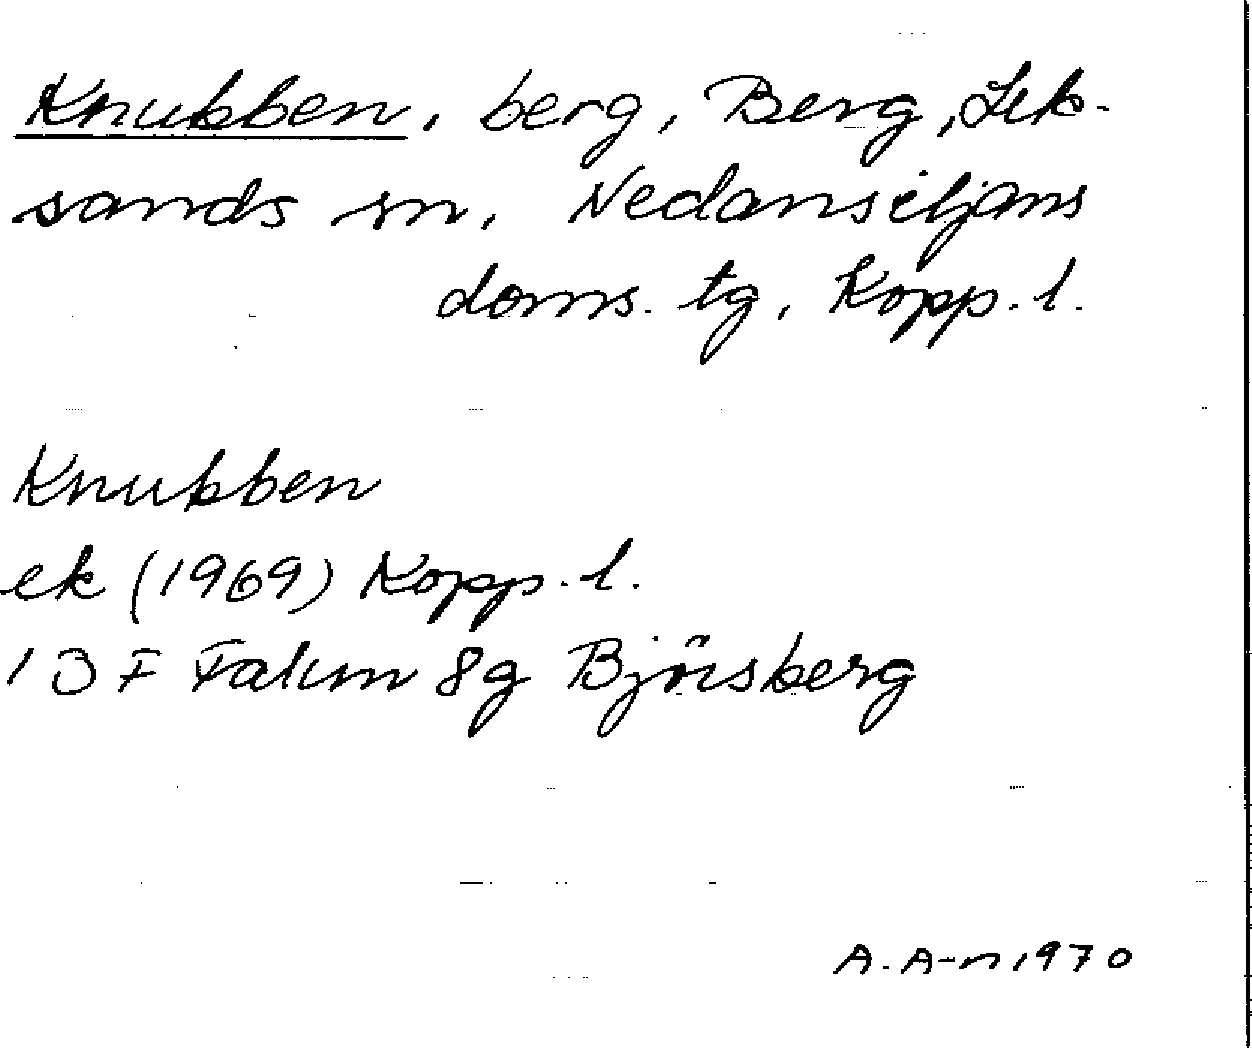 Knubben, berg, Berg, Lek-
sands sn, Nedansiljans
doms. tg, Kopp. l.
Knubben
ek (1969) Kopp. l.
13 F Falun 8g Björsberg
A. A-n 1970